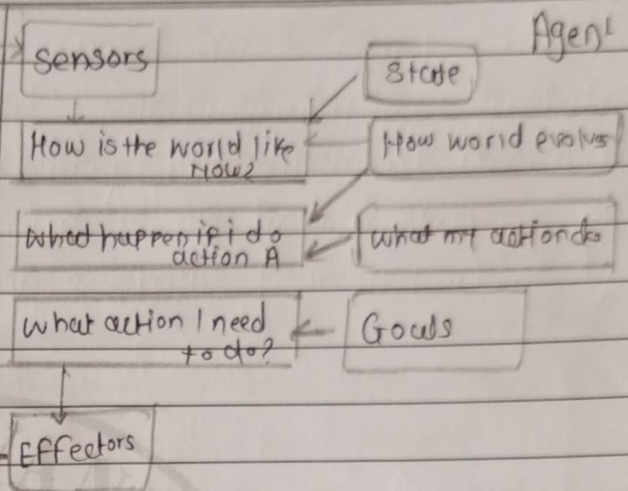 Agent
Sensors
State
How is the world like
Now?
How world evolves
What happen if i do
action A
What my action do
What action I need
to do?
Goals
Effectors